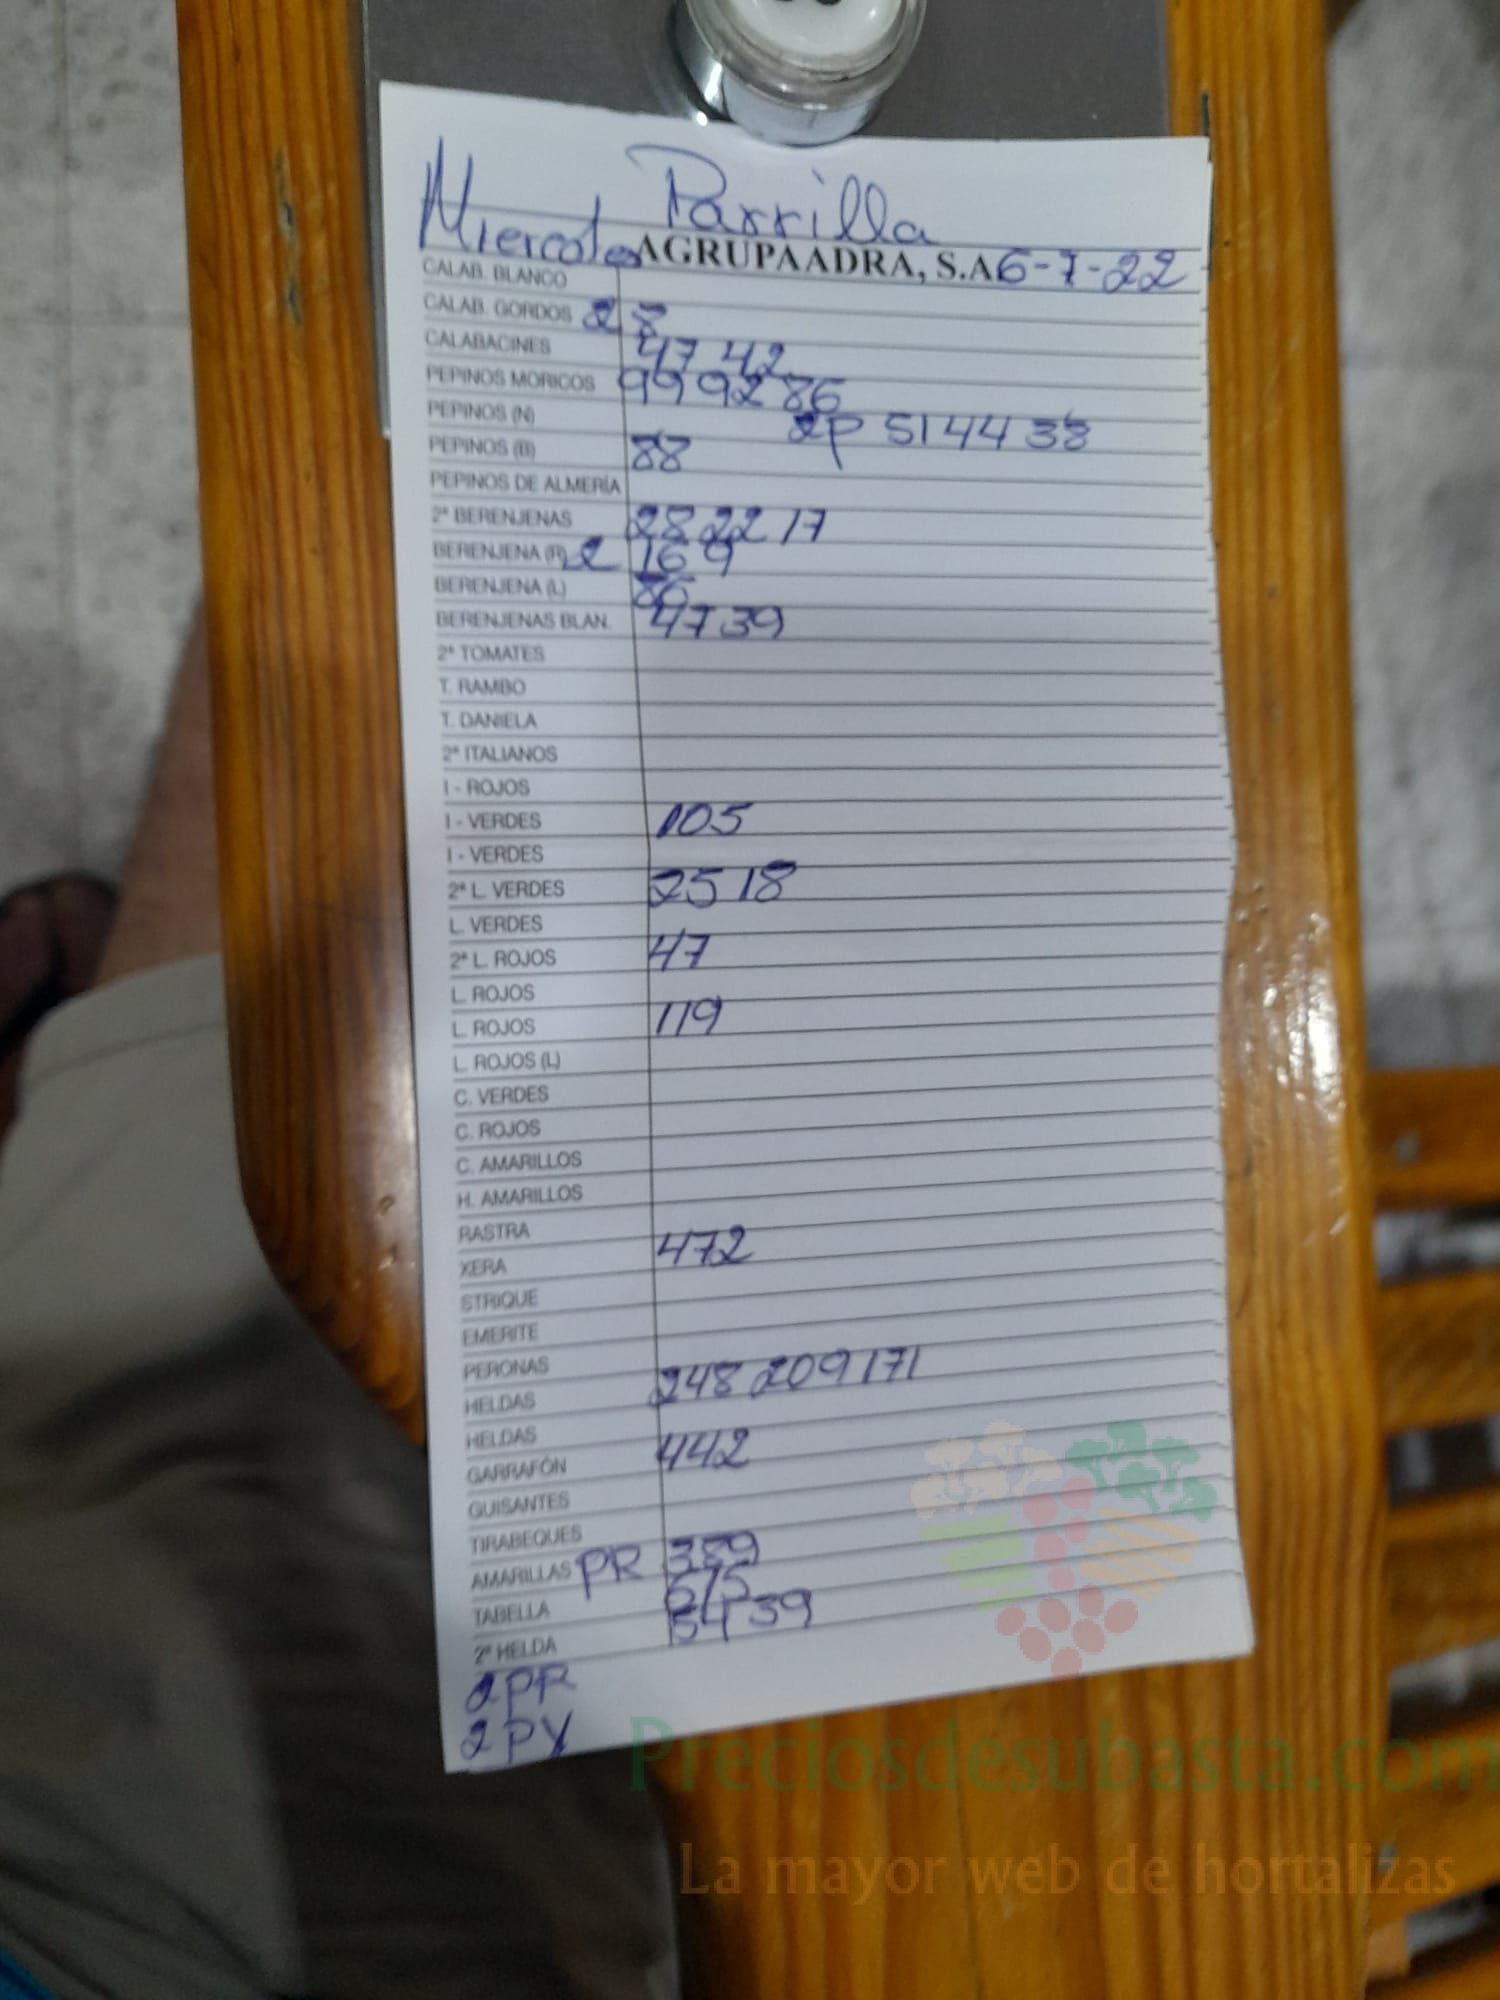 Parrilla
Miercoles AGRUPAADRA, S.A 6-7-22
CALAB. BLANCO
CALAB. GORDOS 2 8
CALABACINES 47 42
PEPINOS MORICOS 99 92 86
PEPINOS (N) 2P 51 44 38
PEPINOS (B) 88
PEPINOS DE ALMERÍA
2ª BERENJENAS 28 22 17
BERENJENA (R) 2 16 9
BERENJENA (L) 86
BERENJENAS BLAN. 47 39
2ª TOMATES
T. RAMBO
T. DANIELA
2ª ITALIANOS
I - ROJOS
I - VERDES 105
I - VERDES
2ª L. VERDES 25 18
L. VERDES
2ª L. ROJOS 47
L. ROJOS
L. ROJOS 119
L. ROJOS (L)
C. VERDES
C. ROJOS
C. AMARILLOS
H. AMARILLOS
RASTRA
XERA 472
STRIQUE
EMERITE
PERONAS
HELDAS 248 209 171
HELDAS
GARRAFÓN 442
GUISANTES
TIRABEQUES
AMARILLAS PR 389
TABELLA 675
2ª HELDA 54 39
2PR
2PY
Preciosdesubasta.com
La mayor web de hortalizas